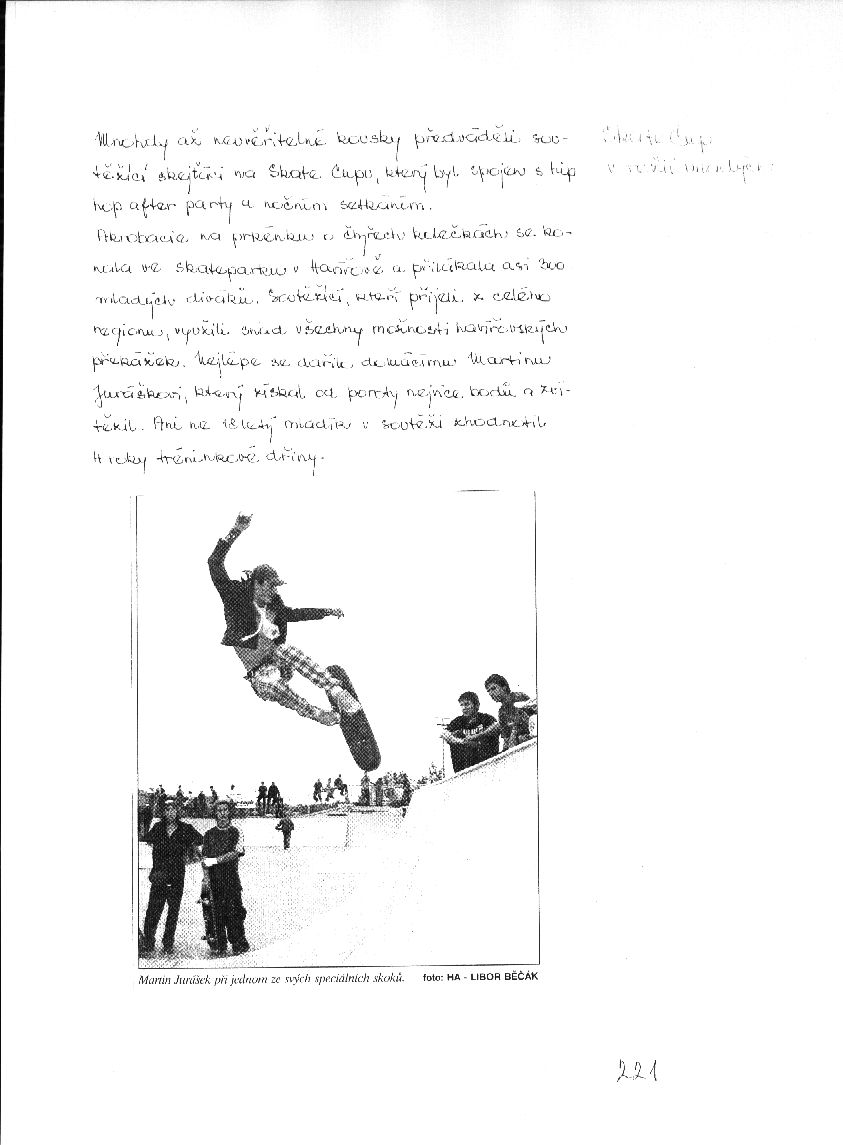 Mnohdy až neuvěřitelné kousky předváděli sou-
těžící skejťáci na Skate Cupu, který byl spojen s hip
hop after party a nočním setkáním.
Akrobacie na prkénku o čtyřech kolečkách se ko-
nala ve skateparku v Havířově a přilákala asi 300
mladých diváků. Soutěžící, kteří přijeli z celého
regionu, využili snad všechny možnosti havířovských
překážek. Nejlépe se dařilo domácímu Martinu
Juráškovi, který získal od poroty nejvíce bodů a zví-
tězil. Ani ne 18 letý mladík v soutěži zhodnotil
4 roky tréninkové dřiny.
Skate Cup
v režii mladých
Martin Jurášek při jednom ze svých speciálních skoků. foto: HA - LIBOR BĚČÁK
221